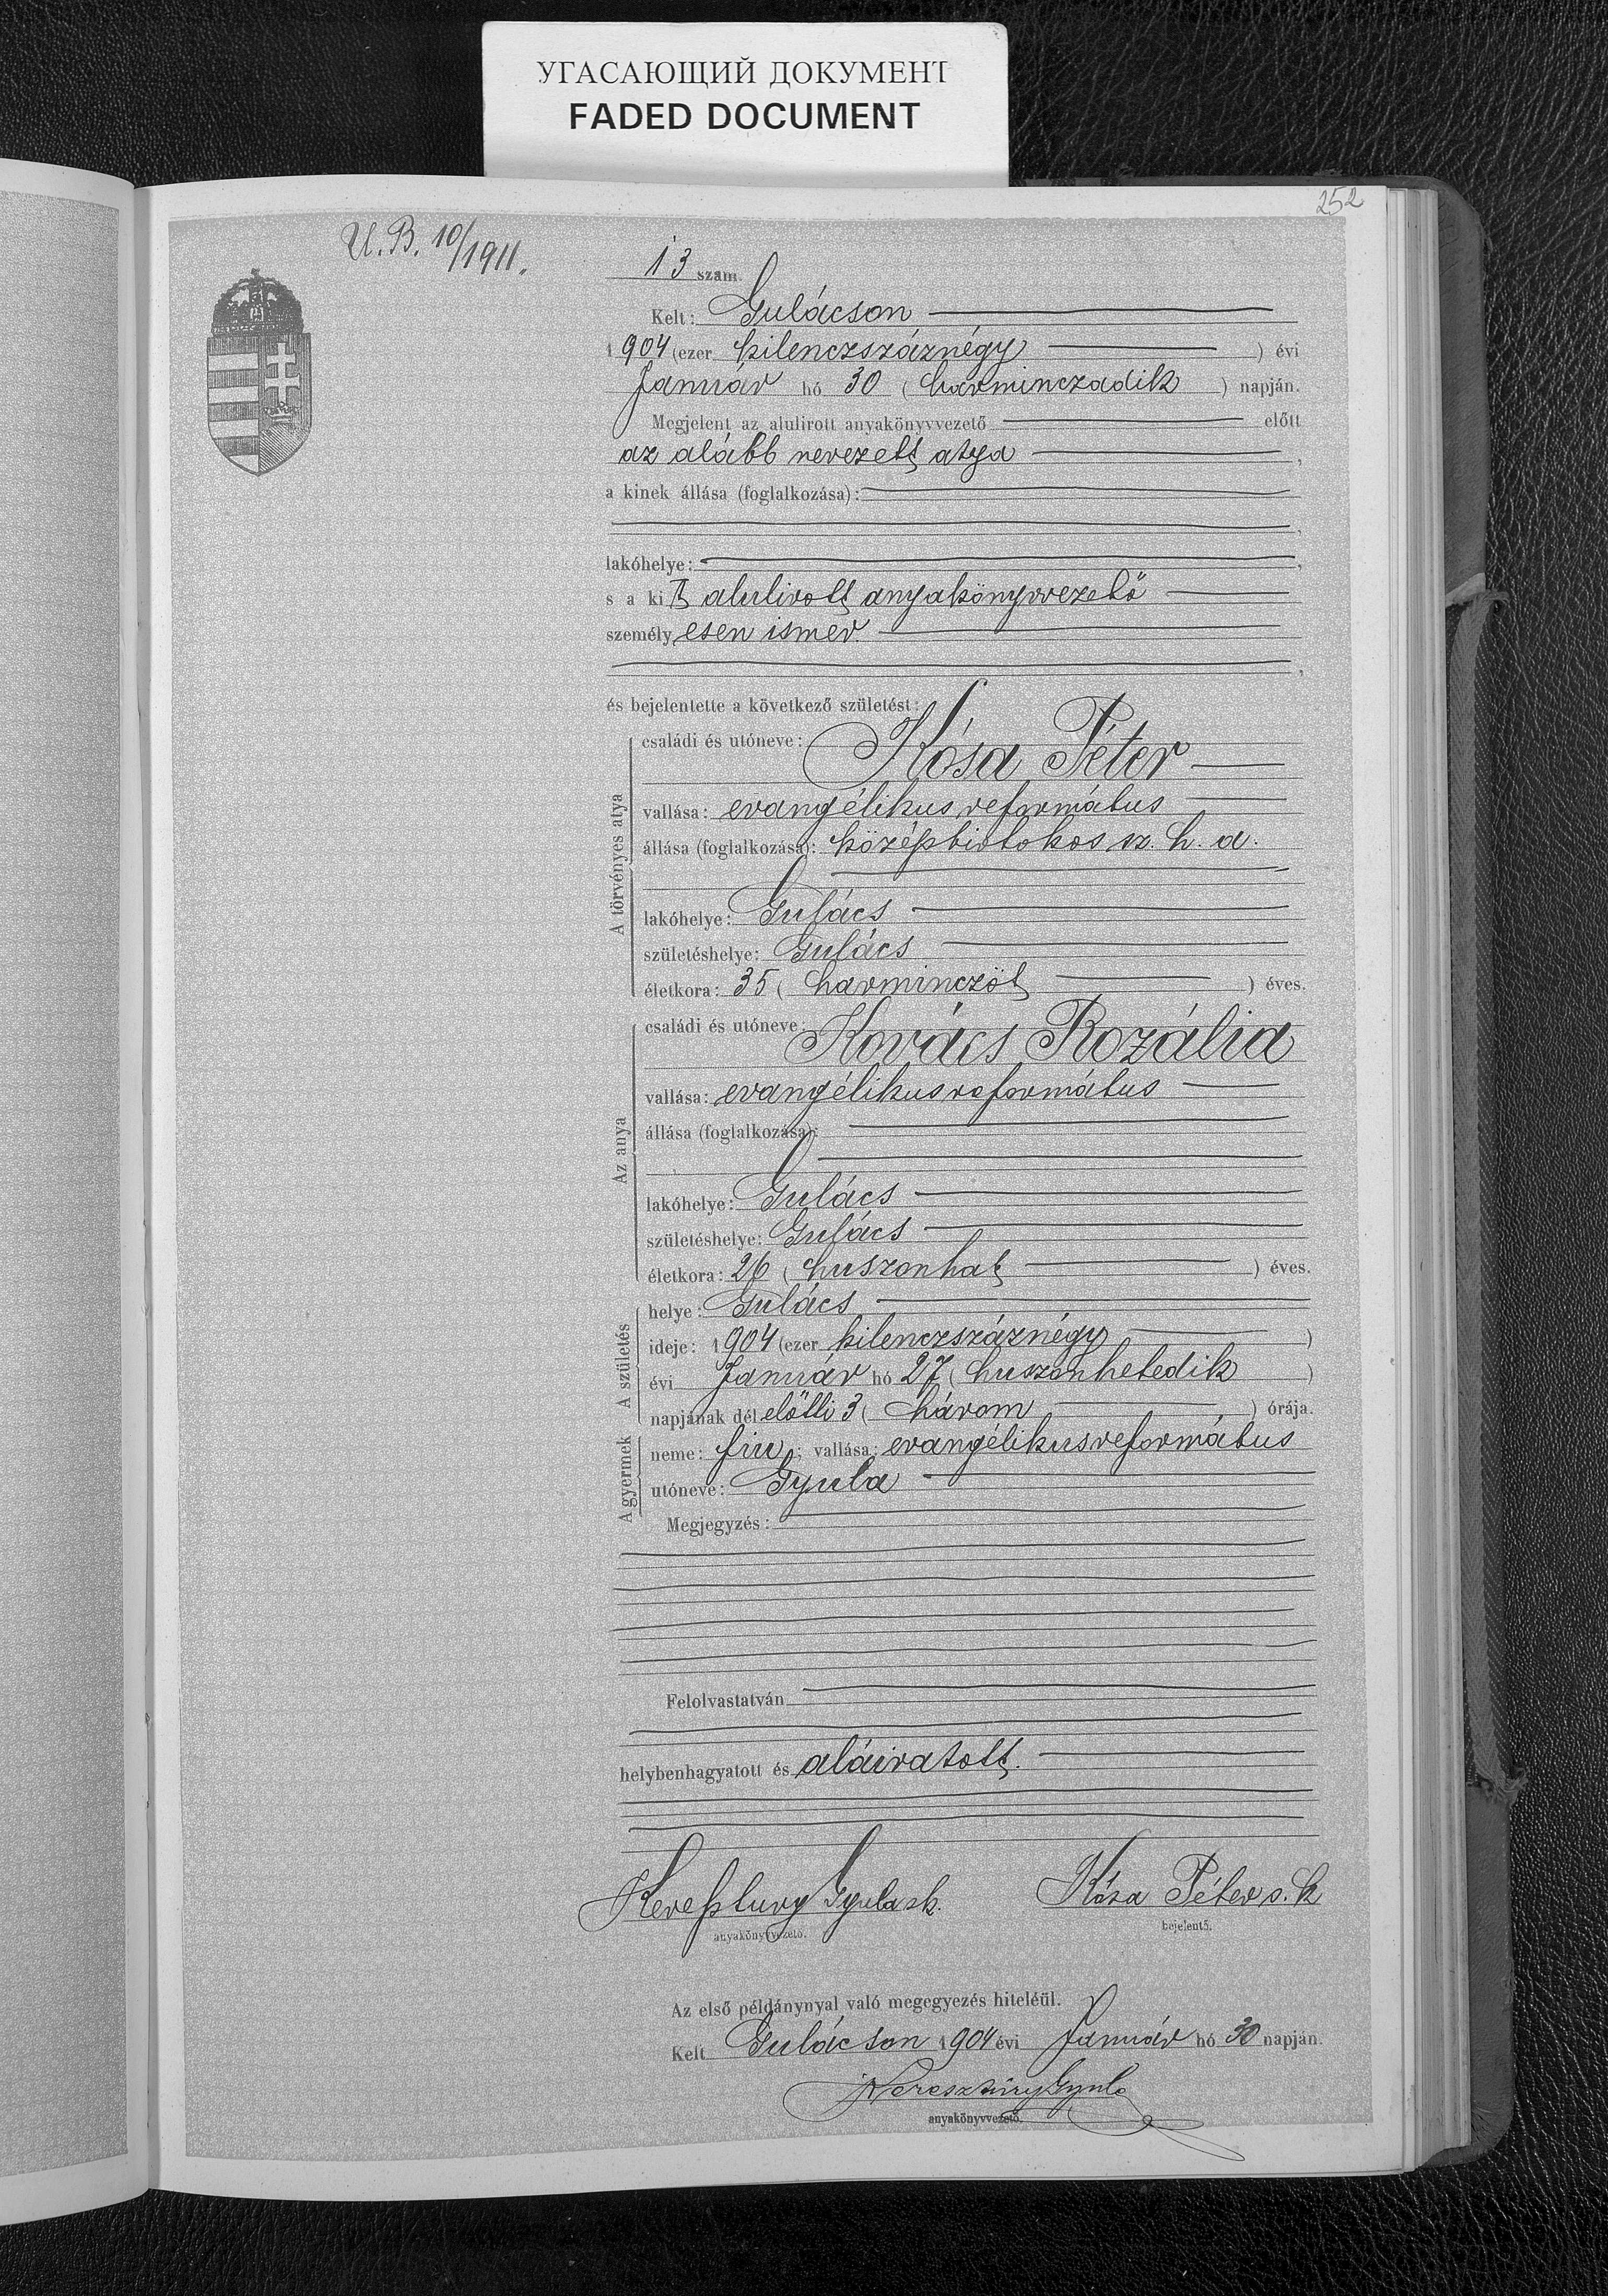 УГАСАЮЩИЙ ДОКУМЕНТ
FADED DOCUMENT
252
U. B. 10/1911.
13 szám.
Kelt: Gulácson
1904 (ezer kilenczszáznégy) évi
Január hó 30 (harminczadik) napján.
Megjelent az alulirott anyakönyvvezető előtt
az alább nevezett atya,
a kinek állása (foglalkozása):
lakóhelye:
s a kit alulirott anyakönyvvezető
személyesen ismer.
és bejelentette a következő születést:
A törvényes atya
családi és utóneve: Kósa Péter
vallása: evangélikus református
állása (foglalkozása): középbirtokos sz. h. a.
lakóhelye: Gulács
születéshelye: Gulács
életkora: 35 (harminczöt) éves.
Az anya
családi és utóneve: Kovács Rozália
vallása: evangélikus református
állása (foglalkozása):
lakóhelye: Gulács
születéshelye: Gulács
életkora: 26 (huszonhat) éves.
A születés
helye: Gulács
ideje: 1904 (ezer kilenczszáznégy)
évi Január hó 27 (huszonhetedik)
napjának délelőtti 3 (három) órája.
A gyermek
neme: fiu; vallása: evangélikus református
utóneve: Gyula
Megjegyzés:
Felolvastatván
helybenhagyatott és aláiratott.
Kereßtury Gyula sk. Kósa Péter s. k
anyakönyvvezető. bejelentő.
Az első példánynyal való megegyezés hiteléül.
Kelt Gulácson 1904 évi Január hó 30 napján.
Keresztúry Gyula
anyakönyvvezető.